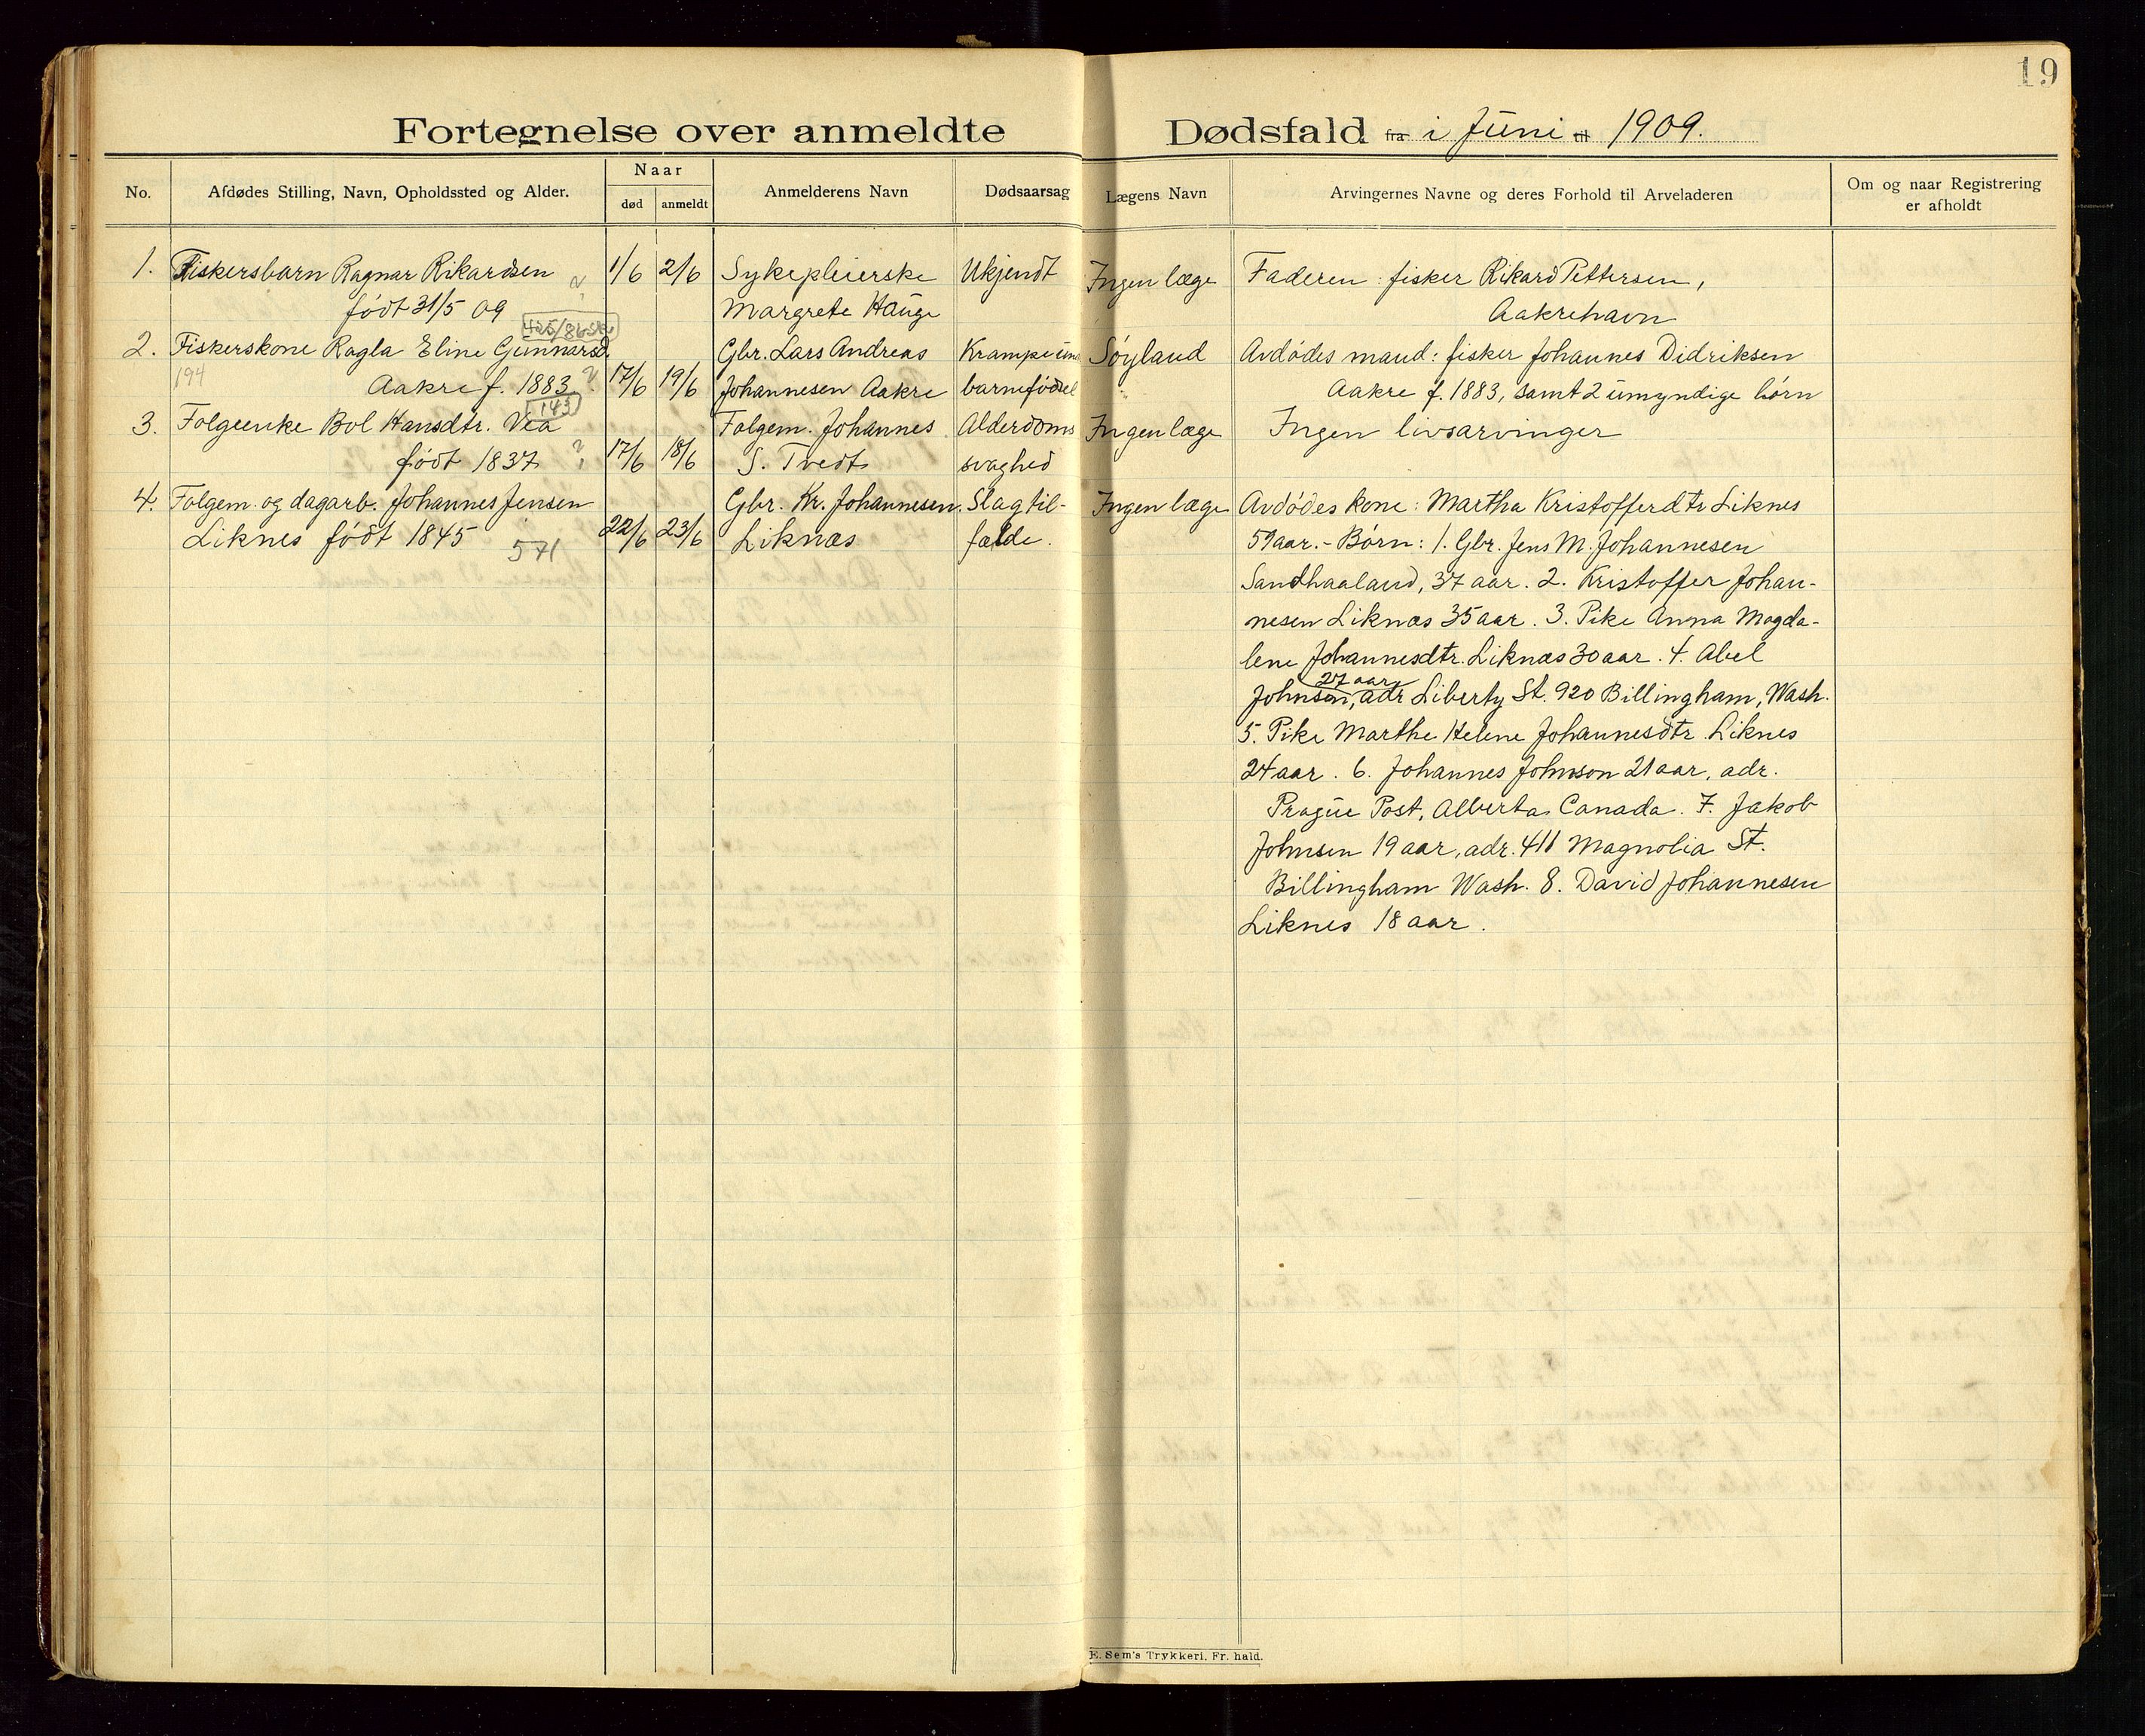 19
Fortegnelse over anmeldte Dødsfald fra i Juni til 1909.
No. Afdødes Stilling, Navn, Opholdssted og Alder. Naar død anmeldt Anmelderens Navn Dødsaarsag Lægens Navn Arvingernes Navne og deres Forhold til Arveladeren Om og naar Registrering er afholdt
1. Fiskersbarn Ragnar Rikardsen 1/6 2/6 Sykepleierske Ukjendt Ingen læge Faderen: fisker Rikard Pettersen,
født 31/5 09 ? Margrete Hauge Aakrehavn
2. Fiskerskone Ragla Eline Gunnarsd. Gbr. Lars Andreas Krampe Søyland Avdødes mand: fisker Johannes Didriksen
194 Aakre f. 1883 ? 17/6 19/6 Johannesen Aakre barnefødsel Aakre f. 1883, samt 2 umyndige børn
143
3. Folgeenke Bol Hansdtr. Vea Folgem. Johannes Alderdoms Ingen læge Ingen livsarvinger
født 1837 ? 17/6 18/6 S. Tvedt svaghed
4. Folgem. og dagarb. Johannes Jensen Gbr. Kr. Johannesen Slagtil- Ingen læge Avdødes kone: Martha Kristofferdtr Liknes
Liknes født 1845 571 22/6 23/6 Liknæs fælde. 59 aar. - Børn: 1. Gbr. Jens M. Johannesen
Sandhaaland, 37 aar. 2. Kristoffer Johan-
nesen Liknæs 35 aar. 3. Pike Anna Magda-
lene Johannesdtr. Liknæs 30 aar. 4. Abel
27 aar
Johnson, adr Liberty St. 920 Billingham, Wash.
5. Pike Marthe Helene Johannesdtr. Liknes
24 aar. 6. Johannes Johnson 21 aar, adr.
Prague Post, Alberta Canada. 7. Jakob
Johnsen 19 aar, adr. 411 Magnolia St.
Billingham Wash. 8. David Johannesen
Liknes 18 aar.
E. Sem's Trykkeri, Fr. hald.